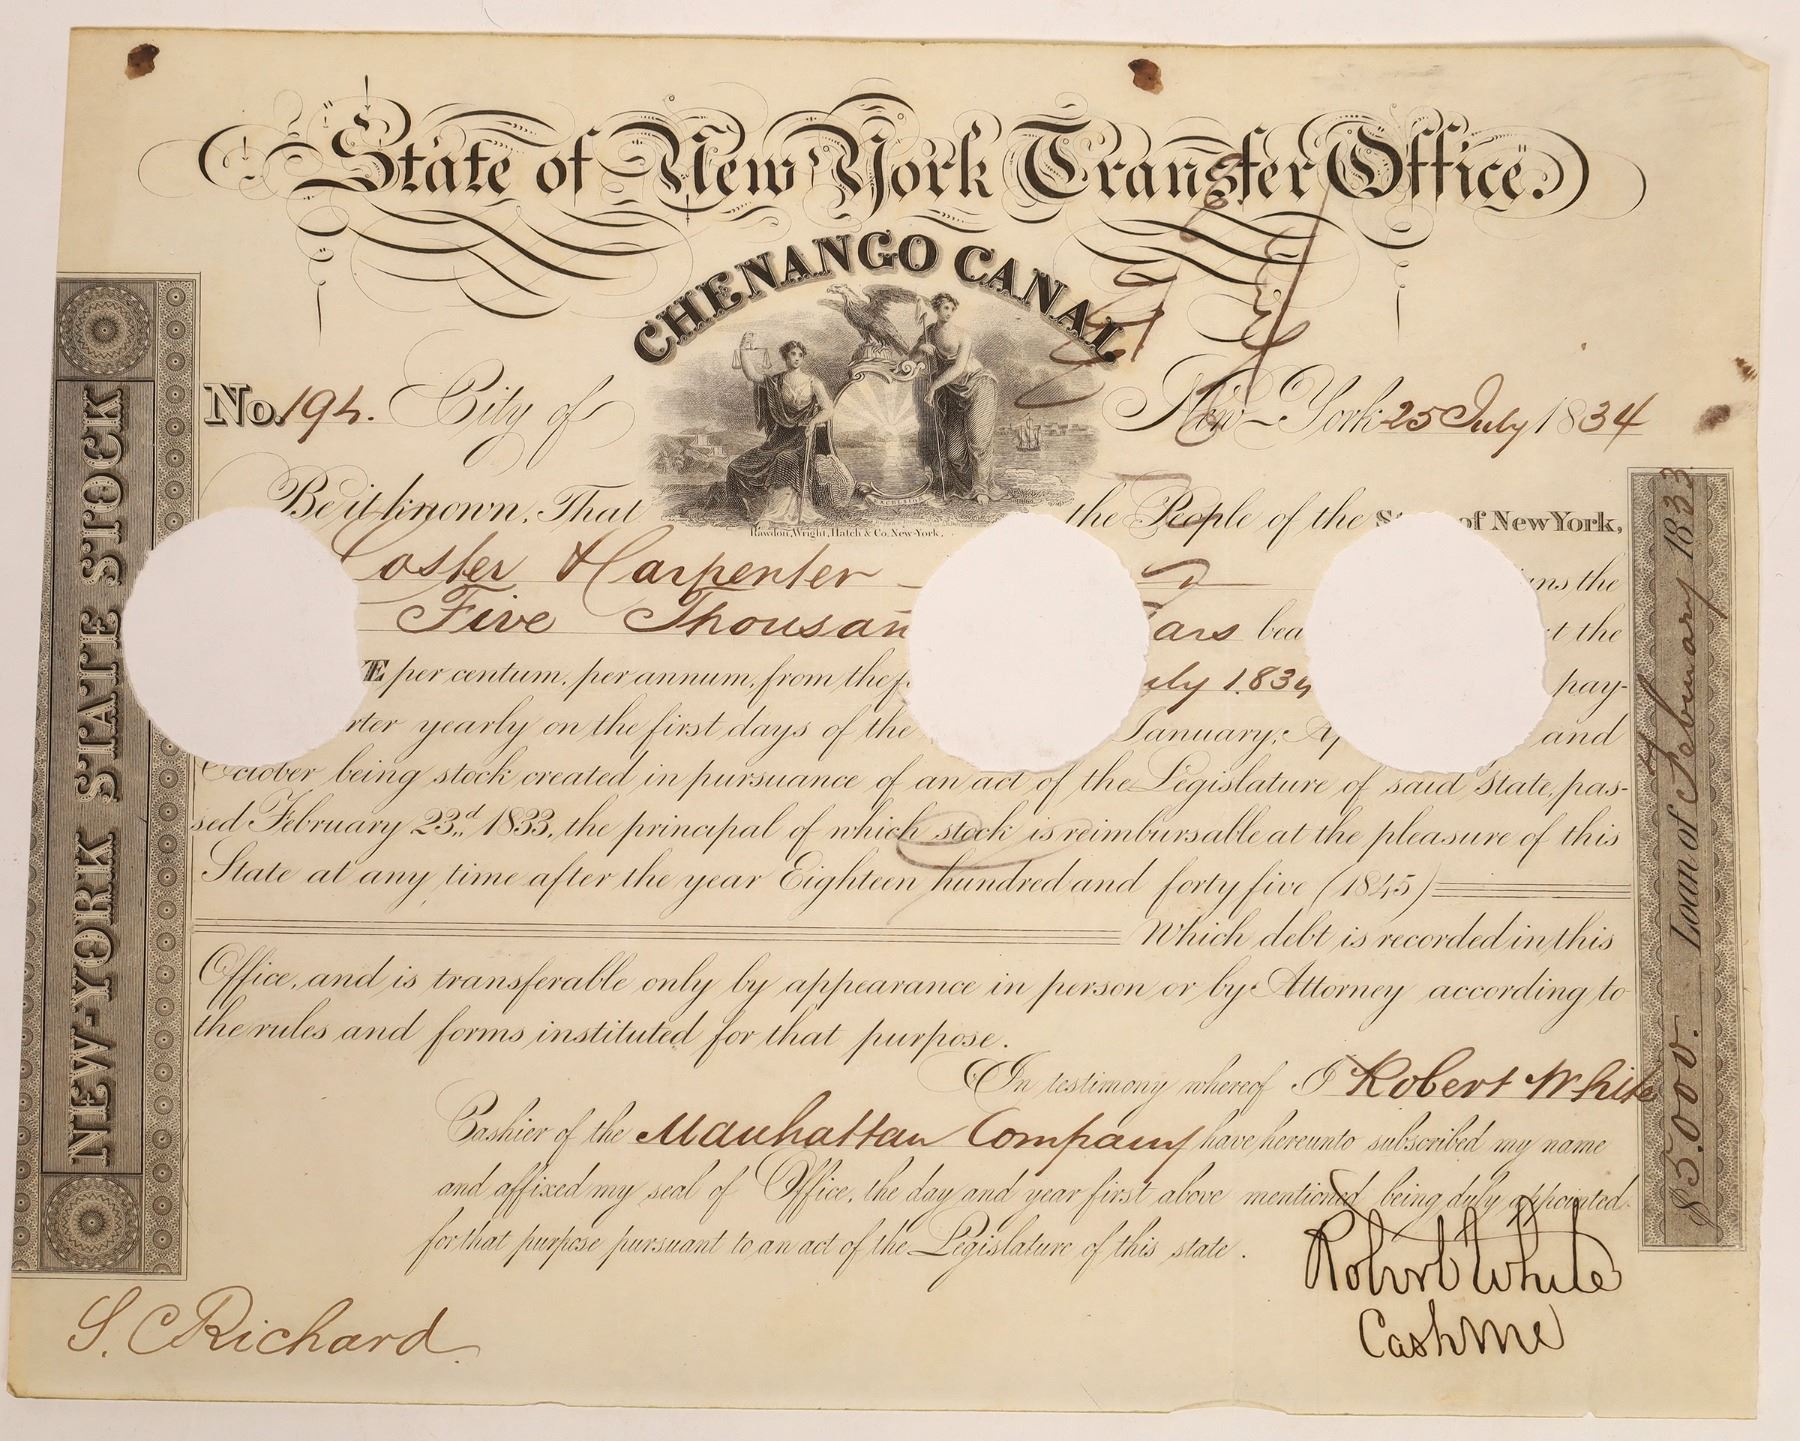 State of New York Transfer Office.
CHENANGO CANAL
No. 194. City of New-York 25 July 1834
Be it known, That the People of the of New York,
Rawdon, Wright, Hatch & Co. New-York.
Coster & Carpenter the
Five Thousan the
E per centum, per annum, from the 1834 pay-
yearly on the first days of the January, and
October being stock created in pursuance of an act of the Legislature of said State, pas-
sed February 23d. 1833, the principal of which stock is reimbursable at the pleasure of this
State at any time after the year Eighteen hundred and forty five (1845)
Which debt is recorded in this
Office, and is transferable only by appearance in person or by Attorney according to
the rules and forms instituted for that purpose.
In testimony whereof I Robert White
Cashier of the Manhattan Company have hereunto subscribed my name
and affixed my seal of Office, the day and year first above mentioned being duly appointed
for that purpose pursuant to an act of the Legislature of this state.
Robert White
S. C Richard
NEW-YORK STATE STOCK
$5.000. Loan of February 1833
EXCELSIOR